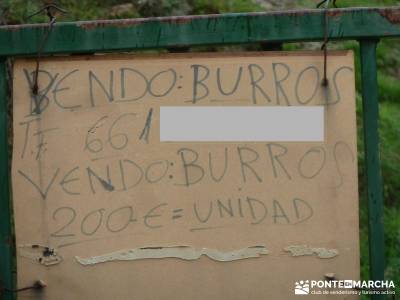 VENDO: BURROS
TF 661
VENDO: BURROS
200-€ = UNIDAD
PONTE DE MARCHA
club de senderismo y turismo activo